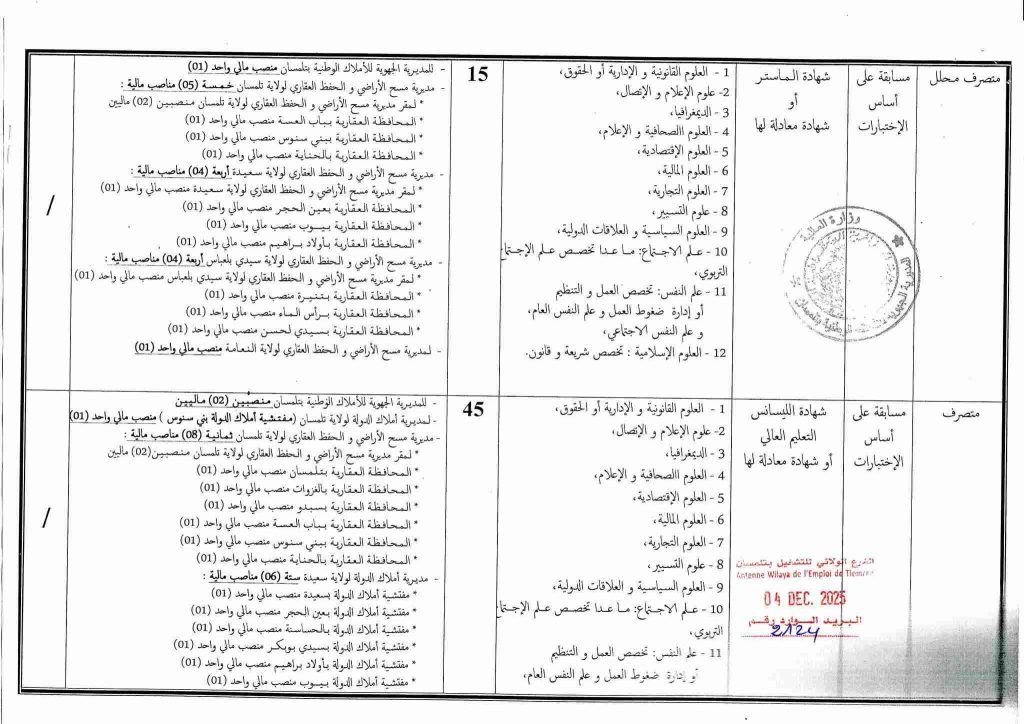 متصرف محلل
مسابقة على
أساس
الإختبارات
شهادة الماستر
أو
شهادة معادلة لها
1 - العلوم القانونية و الإدارية أو الحقوق،
2- علوم الإعلام و الإتصال،
3 - الديمغرافيا،
4 - العلوم االصحافية و الإعلام،
5 - العلوم الإقتصادية،
6 - العلوم المالية،
7 - العلوم التجارية،
8 - علوم التسيير،
9 - العلوم السياسية و العلاقات الدولية،
10 - علم الاجتماع: ما عدا تخصص علم الإجتماع
التربوي،
11 - علم النفس: تخصص العمل و التنظيم
أو إدارة ضغوط العمل و علم النفس العام،
و علم النفس الاجتماعي،
12 - العلوم الإسلامية : تخصص شريعة و قانون.
15
- للمديرية الجهوية للأملاك الوطنية بتلمسان منصب مالي واحد (01)
- مديرية مسح الأراضي و الحفظ العقاري لولاية تلمسان خمسة (05) مناصب مالية :
* لمقر مديرية مسح الأراضي و الحفظ العقاري لولاية تلمسان منصبين (02) ماليين
* المحافظة العقارية بباب العسة منصب مالي واحد (01)
* المحافظة العقارية ببني سنوس منصب مالي واحد (01)
* المحافظة العقارية بالحناية منصب مالي واحد (01)
- مديرية مسح الأراضي و الحفظ العقاري لولاية سعيدة أربعة (04) مناصب مالية :
* لمقر مديرية مسح الأراضي و الحفظ العقاري لولاية سعيدة منصب مالي واحد (01)
* المحافظة العقارية بعين الحجر منصب مالي واحد (01)
* المحافظة العقارية بيوب منصب مالي واحد (01)
* المحافظة العقارية بأولاد براهيم منصب مالي واحد (01)
- مديرية مسح الأراضي و الحفظ العقاري لولاية سيدي بلعباس أربعة (04) مناصب مالية :
* لمقر مديرية مسح الأراضي و الحفظ العقاري لولاية سيدي بلعباس منصب مالي واحد (01)
* المحافظة العقارية بتنيرة منصب مالي واحد (01)
* المحافظة العقارية برأس الماء منصب مالي واحد (01)
* المحافظة العقارية بسيدي لحسن منصب مالي واحد (01)
- لمديرية مسح الأراضي و الحفظ العقاري لولاية النعامة منصب مالي واحد (01)
/
وزارة المالية
متصرف
مسابقة على
أساس
الإختبارات
شهادة الليسانس
التعليم العالي
أو شهادة معادلة لها
1 - العلوم القانونية و الإدارية أو الحقوق،
2- علوم الإعلام و الإتصال،
3 - الديمغرافيا،
4 - العلوم االصحافية و الإعلام،
5 - العلوم الإقتصادية،
6 - العلوم المالية،
7 - العلوم التجارية،
8 - علوم التسيير،
9 - العلوم السياسية و العلاقات الدولية،
10 - علم الاجتماع: ما عدا تخصص علم الإجتماع
التربوي،
11 - علم النفس: تخصص العمل و التنظيم
أو إدارة ضغوط العمل و علم النفس العام،
45
- للمديرية الجهوية للأملاك الوطنية بتلمسان منصبين (02) ماليين
- لمديرية أملاك الدولة لولاية تلمسان (مفتشية أملاك الدولة بني سنوس ) منصب مالي واحد (01)
- مديرية مسح الأراضي و الحفظ العقاري لولاية تلمسان ثمانية (08) مناصب مالية :
* لمقر مديرية مسح الأراضي و الحفظ العقاري لولاية تلمسان منصبين(02) ماليين
* المحافظة العقارية بتلمسان منصب مالي واحد (01)
* المحافظة العقارية بالغزوات منصب مالي واحد (01)
* المحافظة العقارية بسبدو منصب مالي واحد (01)
* المحافظة العقارية بباب العسة منصب مالي واحد (01)
* المحافظة العقارية ببني سنوس منصب مالي واحد (01)
* المحافظة العقارية بالحناية منصب مالي واحد (01)
- مديرية أملاك الدولة لولاية سعيدة ستة (06) مناصب مالية :
* مفتشية أملاك الدولة بسعيدة منصب مالي واحد (01)
* مفتشية أملاك الدولة بعين الحجر منصب مالي واحد (01)
* مفتشية أملاك الدولة بالحساسنة منصب مالي واحد (01)
* مفتشية أملاك الدولة بسيدي بوبكر منصب مالي واحد (01)
* مفتشية أملاك الدولة بأولاد براهيم منصب مالي واحد (01)
* مفتشية أملاك الدولة بيوب منصب مالي واحد (01)
/
الفرع الولائي للتشغيل بتلمسان
Antenne Wilaya de l'Emploi de Tlemcen
04 DEC. 2025
البريد الوارد رقم
2124